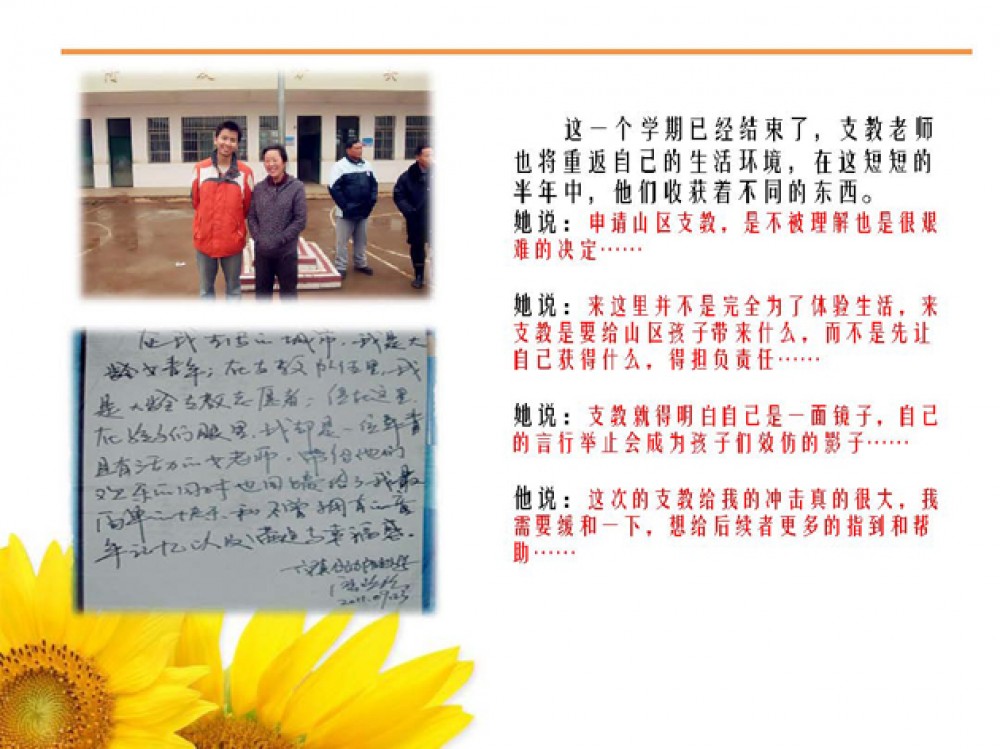 在我生活的城市,我是大
龄女青年;在支教队伍里,我
是大龄支教志愿者;但在这里,
在孩子们眼里,我却是一位年青
且有活力的女老师,带给他们
欢乐的同时也回馈给了我最
简单的快乐和不曾拥有的童
年记忆以及与幸福感。
这一个学期已经结束了，支教老师
也将重返自己的生活环境，在这短短的
半年中，他们收获着不同的东西。
她说：申请山区支教，是不被理解也是很艰
难的决定……
她说：来这里并不是完全为了体验生活，来
支教是要给山区孩子带来什么，而不是先让
自己获得什么，得担负责任……
她说：支教就得明白自己是一面镜子，自己
的言行举止会成为孩子们效仿的影子……
他说：这次的支教给我的冲击真的很大，我
需要缓和一下，想给后续者更多的指到和帮
助……